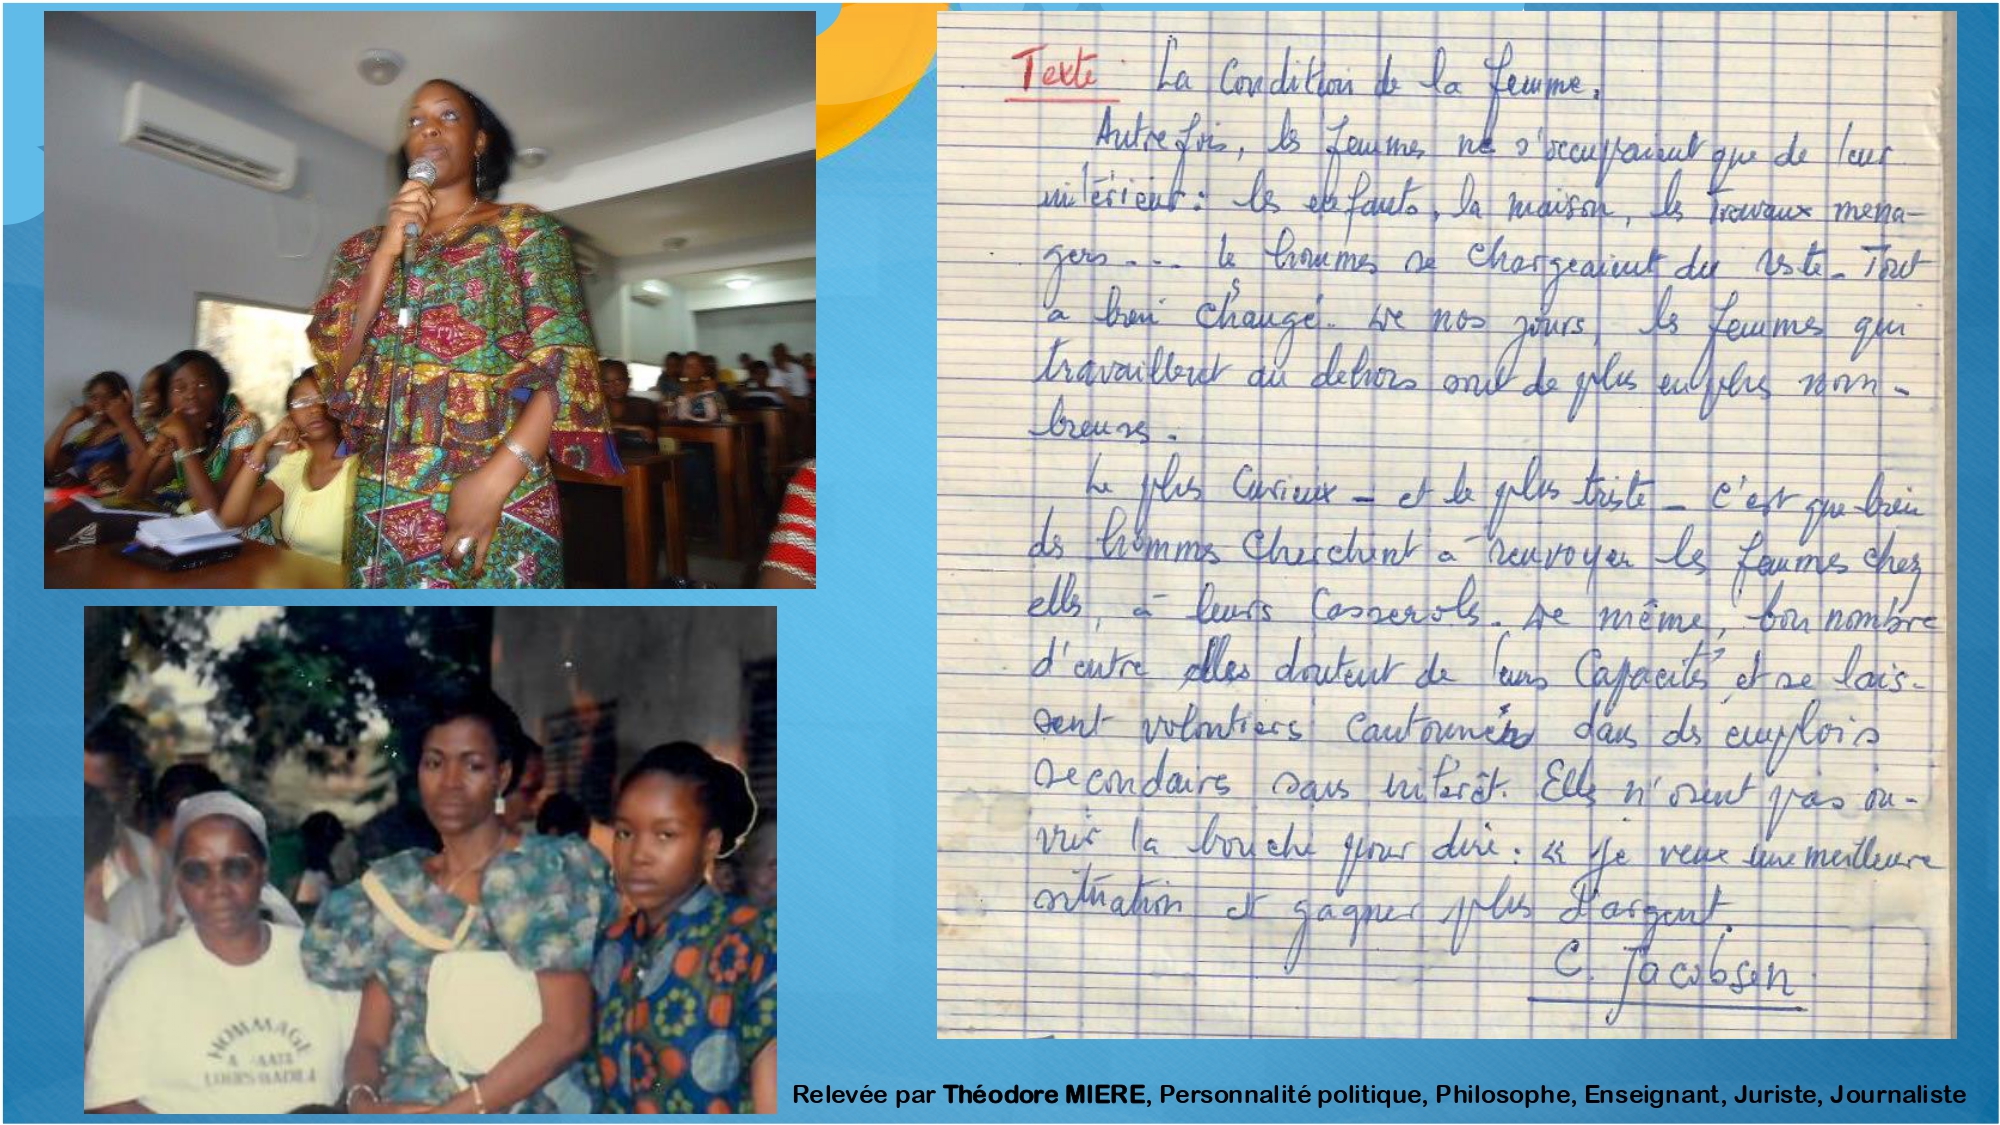 Texte : La Condition de la femme.
Autrefois, les femmes ne s'occupaient que de leur
intérieur : les enfants, la maison, les Travaux ména-
gers... les hommes se chargeaient du reste. Tout
a bien changé. De nos jours, les femmes qui
travaillent au dehors sont de plus en plus nom-
breuses.
Le plus Curieux - et le plus triste - c'est que bien
des hommes Cherchent à renvoyer les femmes chez
elles, à leurs Casseroles. De même, bon nombre
d'entre elles doutent de leurs Capacités et se lais-
sent volontiers Cantonnés dans des emplois
secondaires sans intérêt. Elles n'osent pas ou-
vrir la bouche pour dire : « Je veux une meilleure
situation et gagner plus d'argent.
C. Jacobsen
HOMMAGE
A
LOUIS BADILA
Relevée par Théodore MIERE, Personnalité politique, Philosophe, Enseignant, Juriste, Journaliste